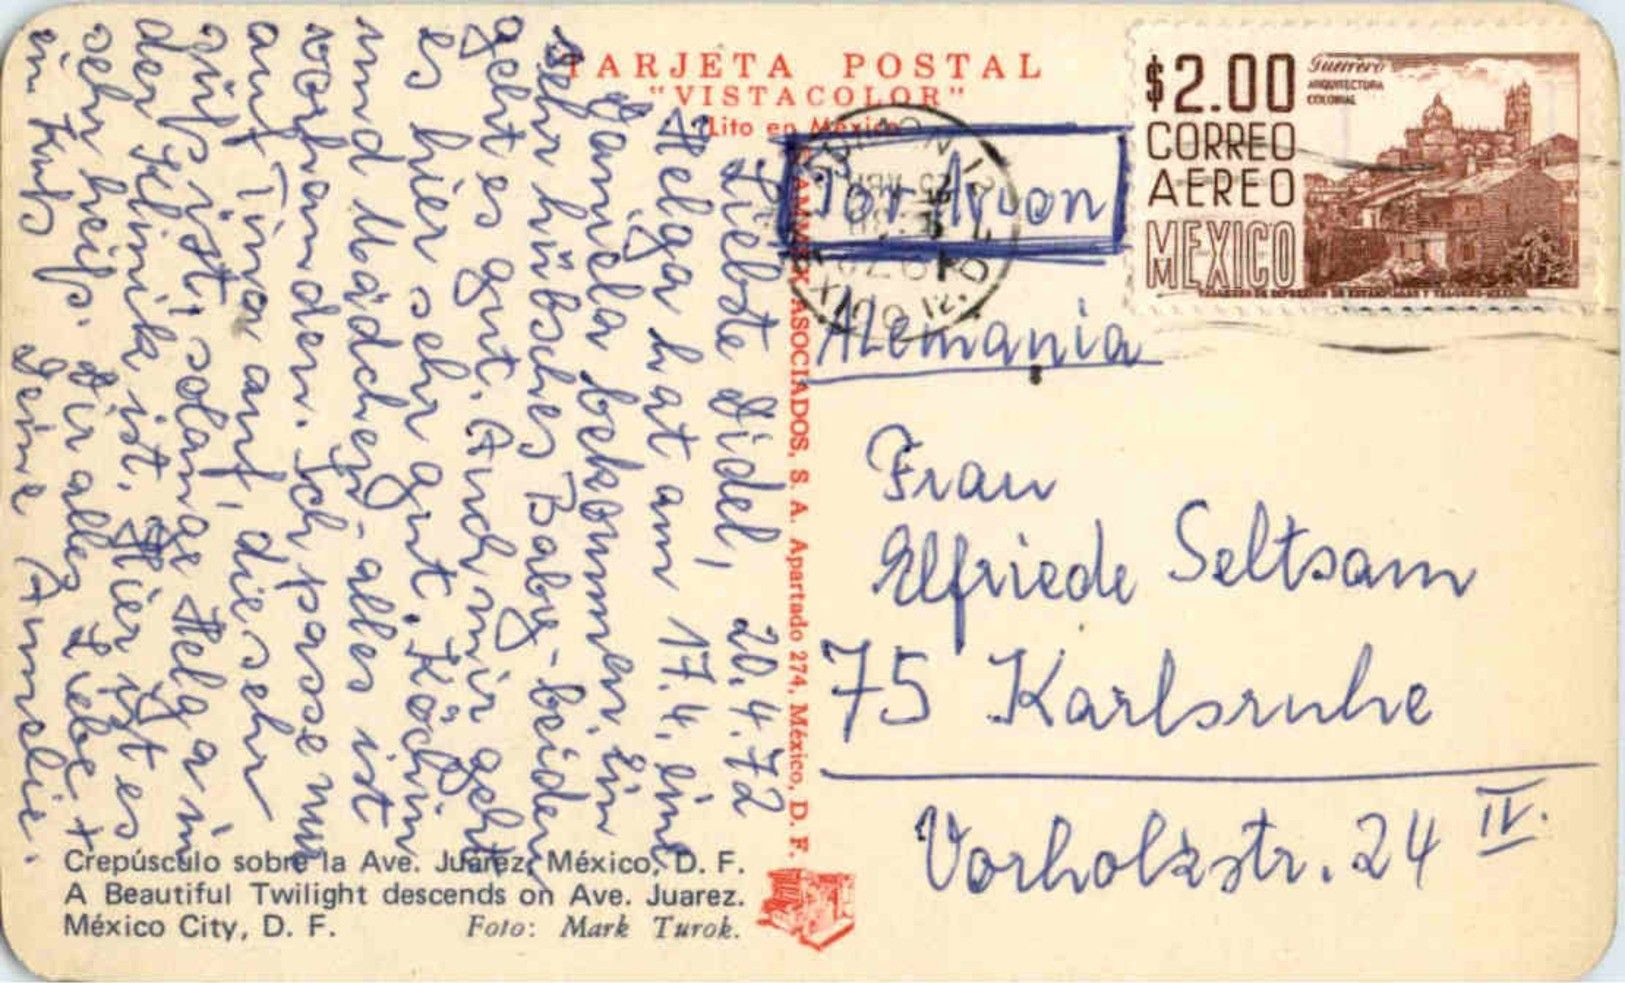 TARJETA POSTAL
"VISTACOLOR"
Lito en México
$2.00
CORREO
AEREO
MEXICO
Guerrero
ARQUITECTURA
COLONIAL
Por Avion
Alemania
Frau
Elfriede Seltsam
75 Karlsruhe
Vorholzstr. 24 IV.
AMMEX ASOCIADOS, S. A. Apartado 274, México, D. F.
20.4.72
Liebste Didel,
Helga hat am 17.4. eine
Daniela bekommen. Ein
sehr hübsches Baby - beiden
geht es gut. Auch mir geht
es hier sehr gut. Köchin
und Mädchen - alles ist
vorhanden. Ich passe nur
auf Tina auf, die sehr
süß ist, solange Helga in
der Klinik ist. Hier ist es
sehr heiß. Dir alles Liebe +
ein Kuß Deine Annelie.
Crepúsculo sobre la Ave. Juárez, México, D. F.
A Beautiful Twilight descends on Ave. Juarez.
México City, D. F. Foto: Mark Turok.